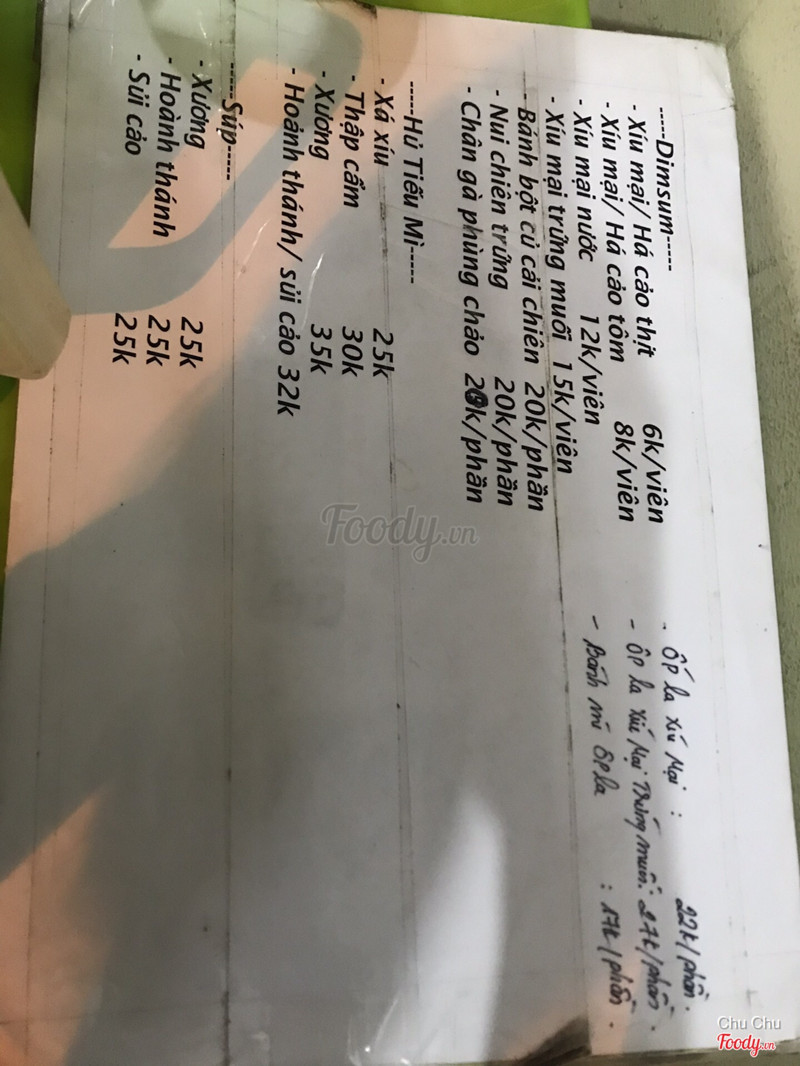 -----Dimsum-----
- Xíu mại/ Há cảo thịt 6k/viên
- Xíu mại/ Há cảo tôm 8k/viên
- Xíu mại nước 12k/viên
- Xíu mại trứng muối 15k/viên
- Bánh bột củ cải chiên 20k/phần
- Nui chiên trứng 20k/phần
- Chân gà phùng chảo 20k/phần
-----Hủ Tiếu Mì-----
- Xá xíu 25k
- Thập cẩm 30k
- Xương 35k
- Hoành thánh/ sủi cảo 32k
-----Súp-----
- Xương 25k
- Hoành thánh 25k
- Sủi cảo 25k
- Ốp la xíu Mại : 22k/phần.
- Ốp la xíu Mại Trứng muối: 27k/phần.
- Bánh mì ốp la : 17k/phần.
Foody.vn
Chu Chu
Foody.vn